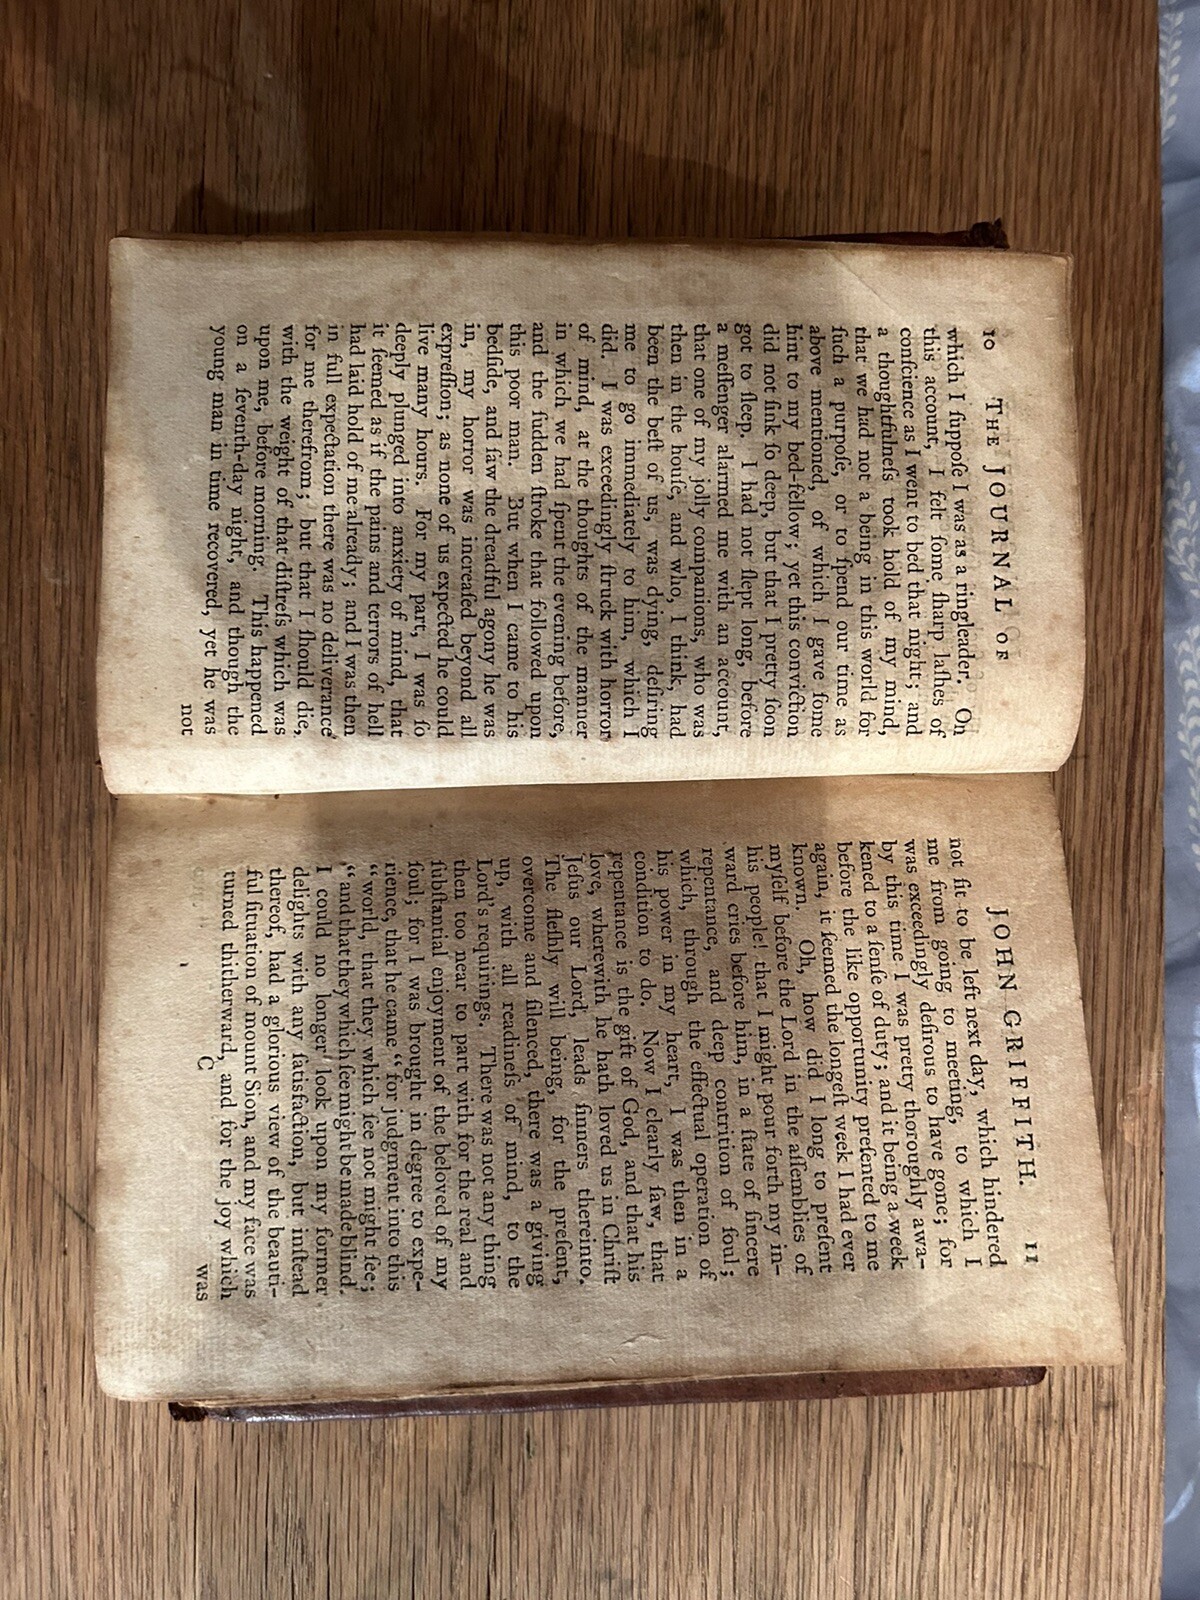 10 THE JOURNAL OF
which I ſuppoſe I was as a ringleader. On
this account, I felt ſome ſharp laſhes of
conſcience as I went to bed that night; and
a thoughtfulneſs took hold of my mind,
that we had not a being in this world for
ſuch a purpoſe, or to ſpend our time as
above mentioned, of which I gave ſome
hint to my bed-fellow; yet this conviction
did not ſink ſo deep, but that I pretty ſoon
got to ſleep. I had not ſlept long, before
a meſſenger alarmed me with an account,
that one of my jolly companions, who was
then in the houſe, and who, I think, had
been the beſt of us, was dying, deſiring
me to go immediately to him, which I
did. I was exceedingly ſtruck with horror
of mind, at the thoughts of the manner
in which we had ſpent the evening before,
and the ſudden ſtroke that followed upon
this poor man. But when I came to his
bedſide, and ſaw the dreadful agony he was
in, my horror was increaſed beyond all
expreſſion; as none of us expected he could
live many hours. For my part, I was ſo
deeply plunged into anxiety of mind, that
it ſeemed as if the pains and terrors of hell
had laid hold of me already; and I was then
in full expectation there was no deliverance
for me therefrom; but that I ſhould die,
with the weight of that diſtreſs which was
upon me, before morning. This happened
on a ſeventh-day night, and though the
young man in time recovered, yet he was
not
JOHN GRIFFITH. 11
not fit to be left next day, which hindered
me from going to meeting, to which I
was exceedingly deſirous to have gone; for
by this time I was pretty thoroughly awa-
kened to a ſenſe of duty; and it being a week
before the like opportunity preſented to me
again, it ſeemed the longeſt week I had ever
known. Oh, how did I long to preſent
myſelf before the Lord in the aſſemblies of
his people! that I might pour forth my in-
ward cries before him, in a ſtate of ſincere
repentance, and deep contrition of ſoul;
which, through the effectual operation of
his power in my heart, I was then in a
condition to do. Now I clearly ſaw, that
repentance is the gift of God, and that his
love, wherewith he hath loved us in Chriſt
Jeſus our Lord, leads ſinners thereinto.
The fleſhly will being, for the preſent,
overcome and ſilenced, there was a giving
up, with all readineſs of mind, to the
Lord's requirings. There was not any thing
then too near to part with for the real and
ſubſtantial enjoyment of the beloved of my
ſoul; for I was brought in degree to expe-
rience, that he came “ for judgment into this
“ world, that they which ſee not might ſee;
“ and that they which ſee might be made blind.
I could no longer look upon my former
delights with any ſatisfaction, but inſtead
thereof, had a glorious view of the beauti-
ful ſituation of mount Sion, and my face was
turned thitherward, and for the joy which
C was